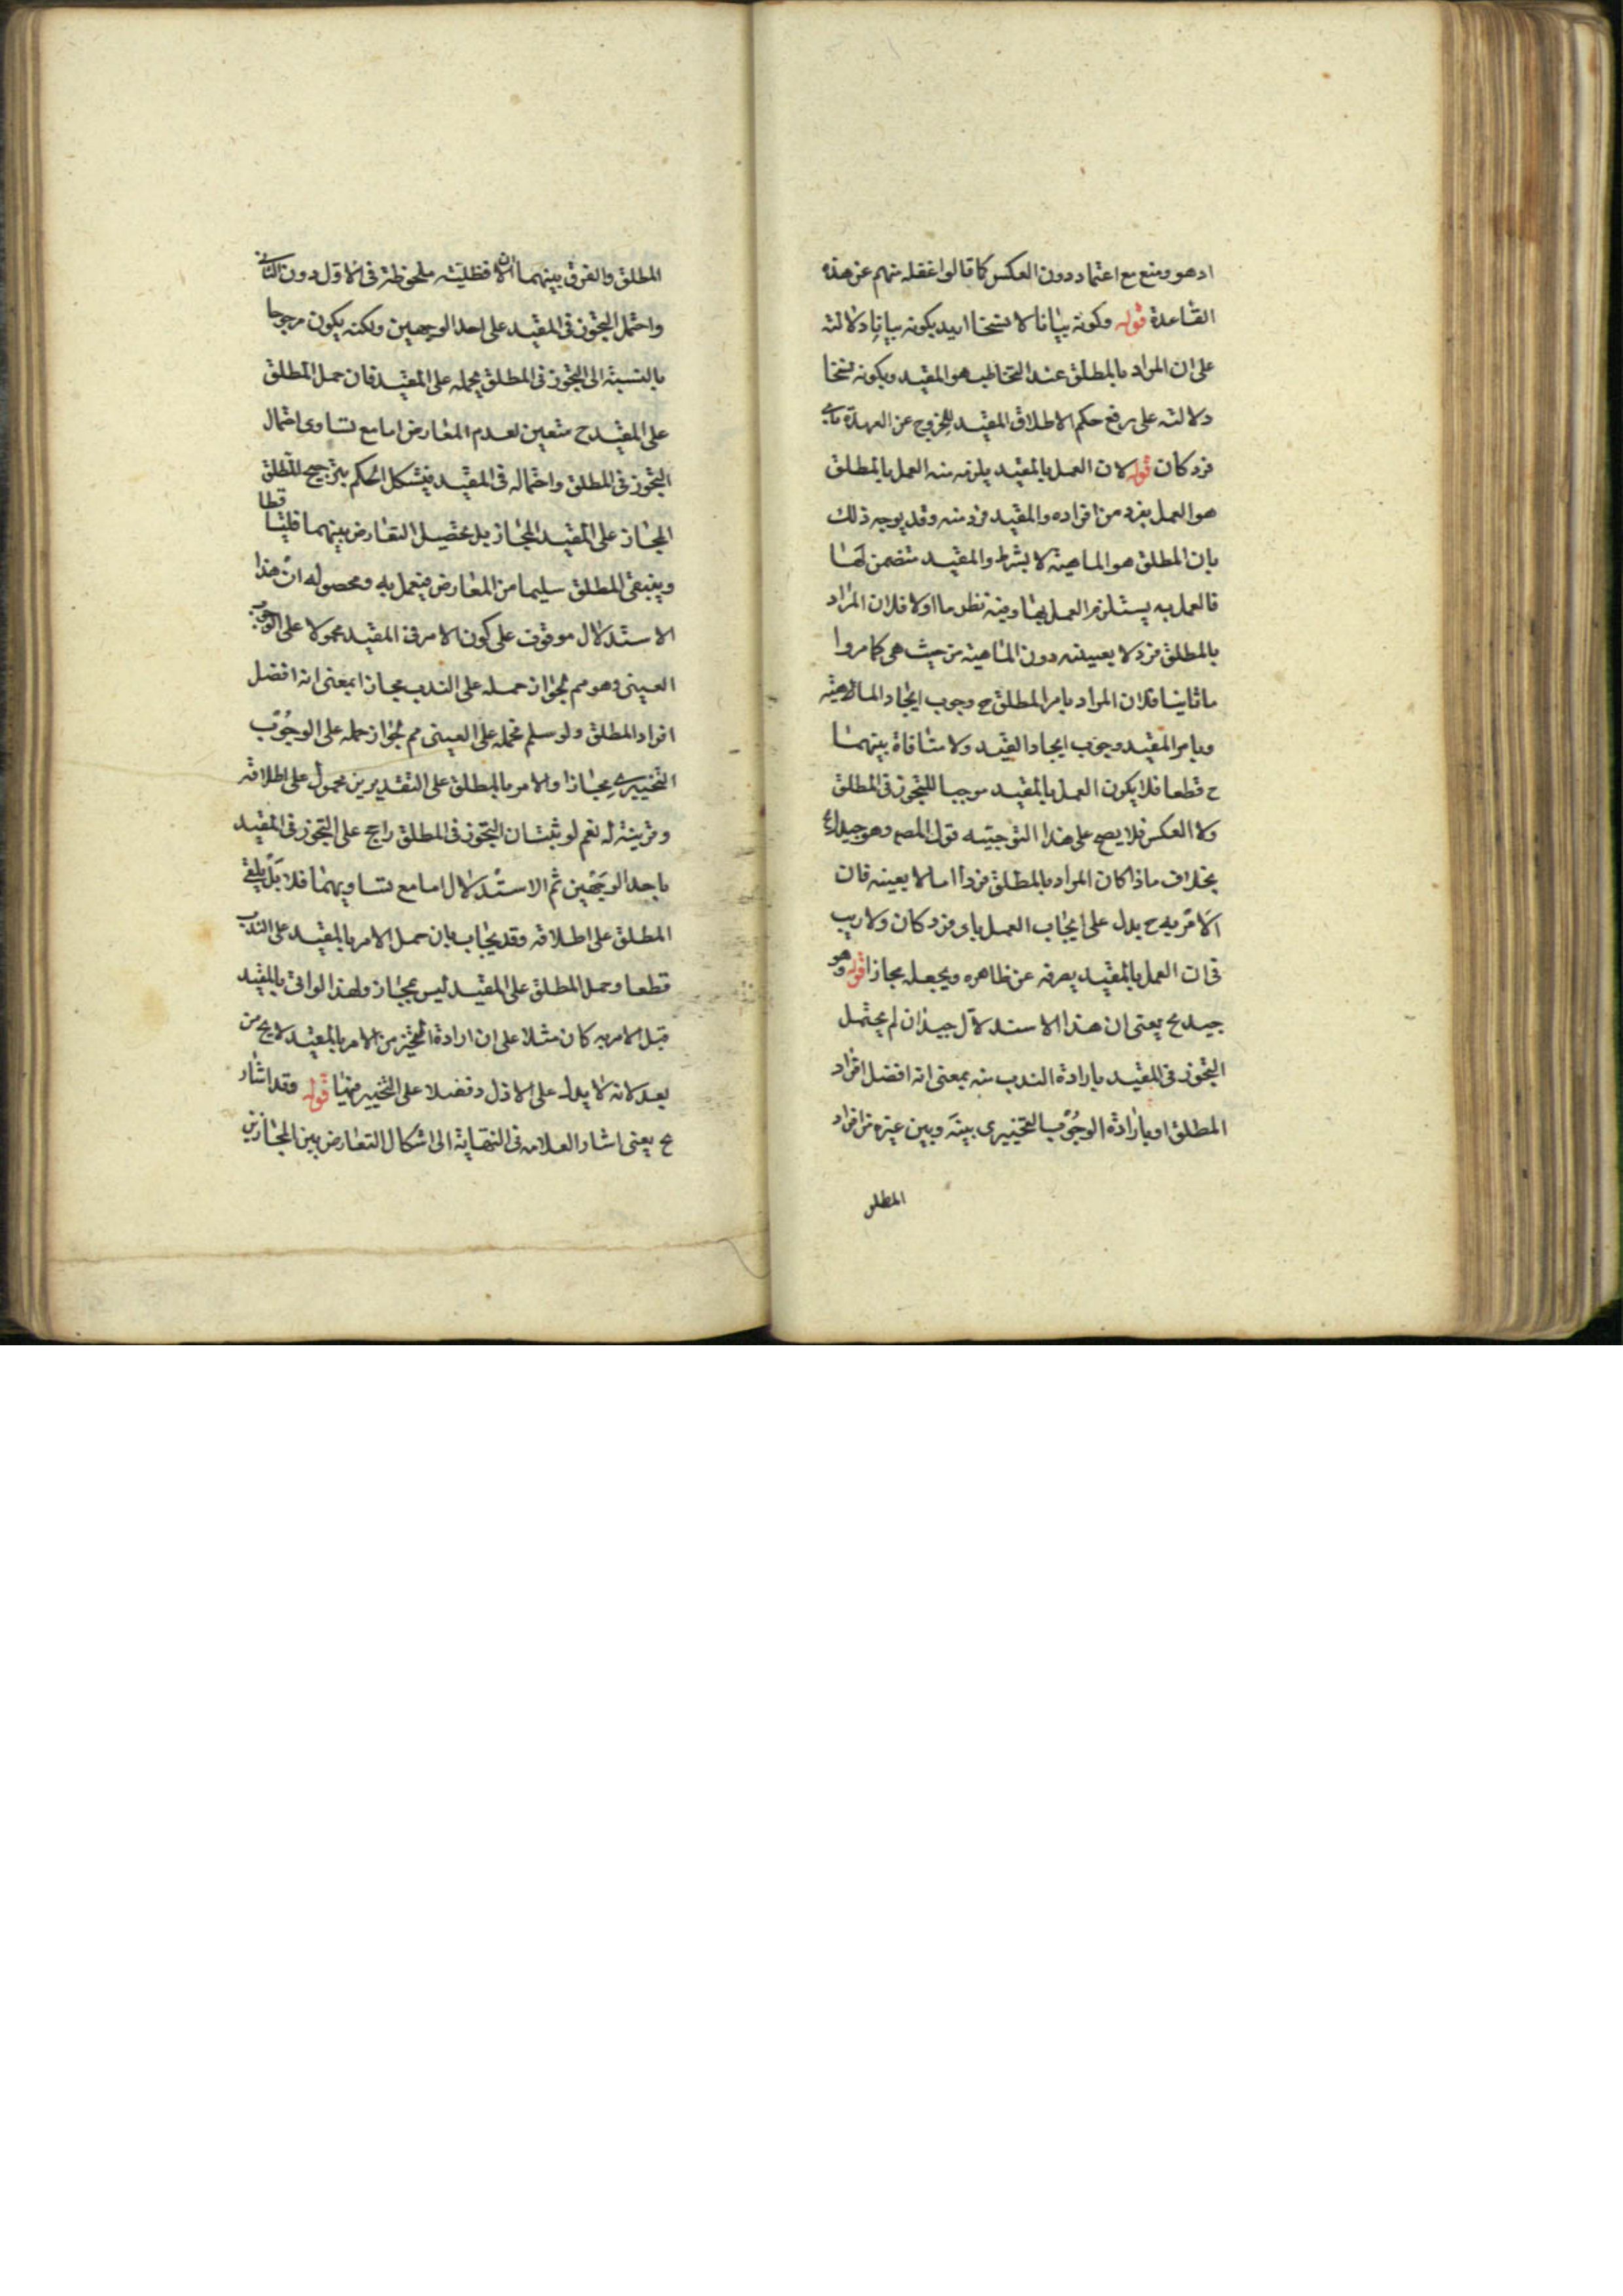 اد هو ومنع مع اعتماد دون العكس كما قالوا غفله منهم عن هذه
القاعدة قوله وكونه بيانا لا نسخا اريد بكونه بيانا دلالته
على ان المراد بالمطلق عند التخاطب هو المقيد وبكونه نسخا
دلالته على رفع حكم الاطلاق المقيد للخروج عن العهدة باي
فرد كان قوله لان العمل بالمقيد يلزم منه العمل بالمطلق
هو العمل بفرد من افراده والمقيد فرد منه وقد يوجه ذلك
بان المطلق هو الماهية لا بشرط والمقيد متضمن لها
فالعمل به يستلزم العمل بها وفيه نظر اما اولا فلان المراد
بالمطلق فرد لا بعينه دون الماهية من حيث هي كما مر وا
ما ثانيا فلان المراد بامر المطلق ح وجوب ايجاد الماهية
وبامر المقيد وجوب ايجاد القيد ولا منافاة بينهما
ح قطعا فلا يكون العمل بالمقيد موجبا للتجوز في المطلق
ولا العكس فلا يصح على هذا التوجيه قول المص وهو جيد الخ
بخلاف ما اذا كان المراد بالمطلق فردا ما لا بعينه فان
الامر به ح يدل على ايجاب العمل باى فرد كان ولا ريب
في ان العمل بالمقيد يصرفه عن ظاهره ويجعله مجازا قوله وهو
جيد ع يعنى ان هذا الاستدلال جيد ان لم يحتمل
التجوز في المقيد بارادة الندب منه بمعنى انه افضل افراد
المطلق او بارادة الوجوب التخييرى بينه وبين غيره من افراد
المطلق
المطلق والفرق بينهما ان الافضلية ملحوظة في الاول دون الثاني
واحتمل التجوز في المقيد على احد الوجهين ولكنه يكون مرجوحا
بالنسبة الى التجوز في المطلق بحمله على المقيد فان حمل المطلق
على المقيد ح متعين لعدم المعارض اما مع تساوى احتمال
التجوز في المطلق واحتماله في المقيد فيشكل الحكم بترجيح المطلق
المجاز على المقيد المجاز بل يحصل التعارض بينهما فليتساقطا
ويبقى المطلق سليما من المعارض فيعمل به ومحصوله ان هذا
الاستدلال موقوف على كون الامر في المقيد محمولا على الوجوب
العينى وهو مم لجواز حمله على الندب مجازا بمعنى انه افضل
افراد المطلق ولو سلم فحمله على العينى مم لجواز حمله على الوجوب
التخييرى مجازا والامر بالمطلق على التقديرين محمول على اطلاقه
وقرينة له نعم لو ثبت ان التجوز في المطلق راجح على التجوز في المقيد
باحد الوجهين تم الاستدلال اما مع تساويهما فلا بل يبقى
المطلق على اطلاقه وقد يجاب بان حمل الامر بالمقيد على الندب
قطعا وحمل المطلق على المقيد ليس بمجاز ولهذا لو اتى بالمقيد
قبل الامر به كان مثلا على ان ارادة التخيير من الامر بالمقيد لا يخ من
بعد لانه لا يدل على الاول فضلا على التخيير فيها قوله وقد اشار
ع يعنى اشار العلامه في النهاية الى اشكال التعارض بين المجازين